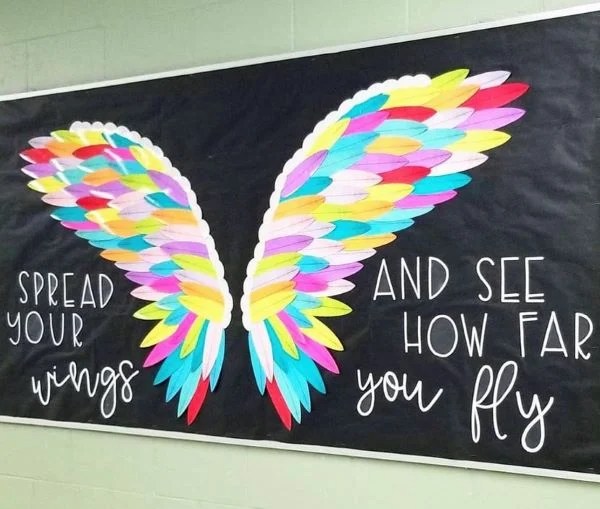 SPREAD
YOUR
wings
AND SEE
HOW FAR
you fly